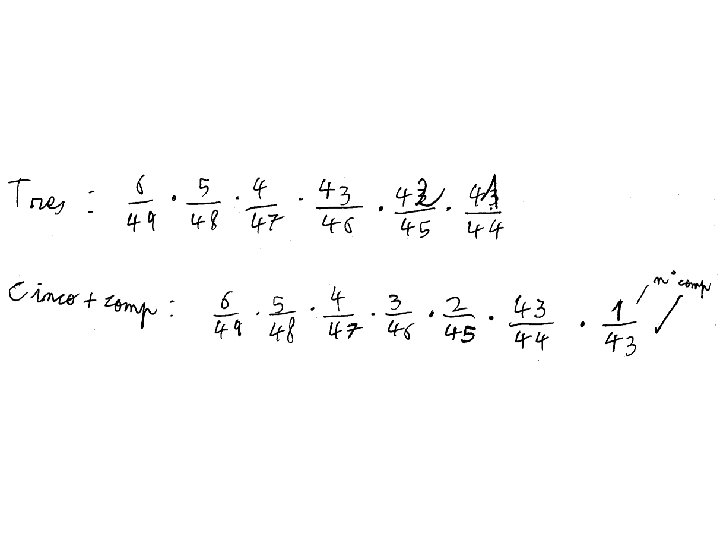 Tres : 6/49 · 5/48 · 4/47 · 43/46 · 42/45 · 41/44
nº comp
Cinco + comp : 6/49 · 5/48 · 4/47 · 3/46 · 2/45 · 43/44 · 1/43